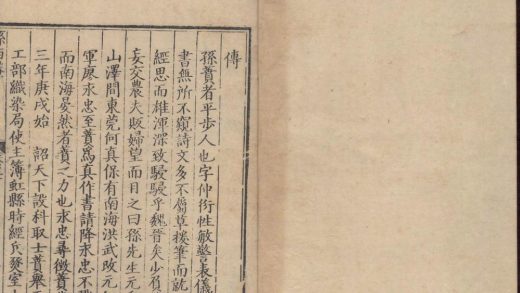 傳
孫蕡者平步人也字仲衍性敏慧
書無所不窺詩文多不屬草援筆而就
經思而雄渾深致駸駸乎魏晉矣少有
妄交農夫販婦望而目之曰孫先生元
山澤間東莞何真保有南海洪武改元
軍廖永忠至蕡爲真作書請降永忠不
而南海晏然者蕡之力也永忠尋徵蕡
三年庚戌始 詔天下設科取士蕡舉
工部織染局使主簿虹縣時經兵燹室